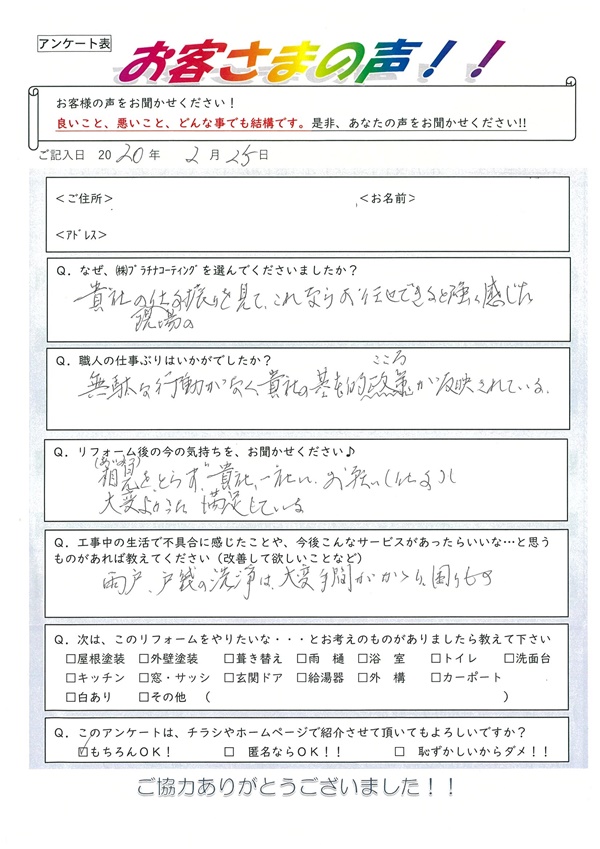 アンケート表
お客さまの声！！
お客様の声をお聞かせください！
良いこと、悪いこと、どんな事でも結構です。是非、あなたの声をお聞かせください!!
ご記入日 2020年 2月25日
＜ご住所＞ ＜お名前＞
＜ｱﾄﾞﾚｽ＞
Q．なぜ、㈱ﾌﾟﾗﾁﾅｺｰﾃｨﾝｸﾞを選んでくださいましたか？
貴社の仕事振りを見て、これならお任せできると強く感じた
現場の
Q．職人の仕事ぶりはいかがでしたか？
こころ
無駄な行動がなく貴社の基本的政策が反映されている。
Q．リフォーム後の今の気持ちを、お聞かせください♪
をとらず、貴社一社に、お願い(仕事)し
大変よかった 満足している
Q．工事中の生活で不具合に感じたことや、今後こんなサービスがあったらいいな…と思う
ものがあれば教えてください（改善して欲しいことなど）
雨戸、戸袋の洗浄は、大変手間がかかり、困りもの
Q．次は、このリフォームをやりたいな・・・とお考えのものがありましたら教えて下さい
□屋根塗装 □外壁塗装 □葺き替え □雨 樋 □浴 室 □トイレ □洗面台
□キッチン □窓・サッシ □玄関ドア □給湯器 □外 構 □カーポート
□白あり □その他 （ ）
Q．このアンケートは、チラシやホームページで紹介させて頂いてもよろしいですか？
☑もちろんOK！ □ 匿名ならOK！！ □ 恥ずかしいからダメ！！
ご協力ありがとうございました！！